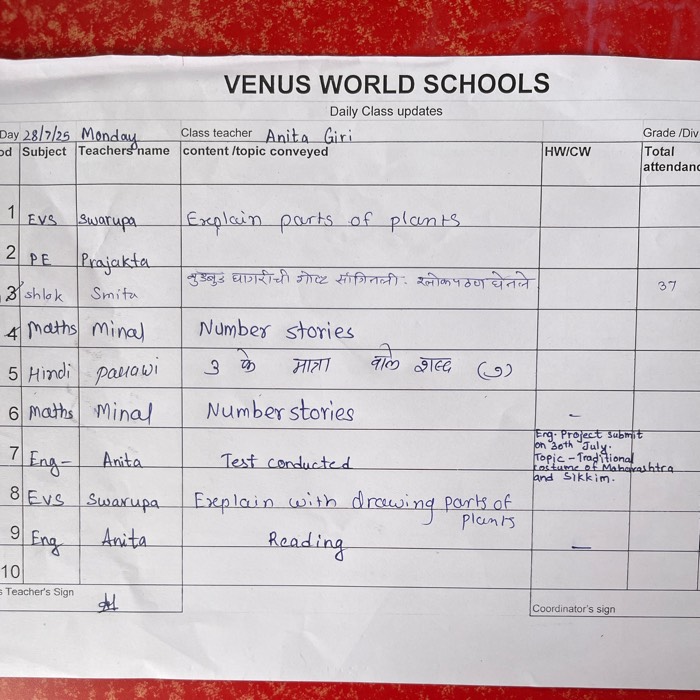 VENUS WORLD SCHOOLS
Daily Class updates
Day 28/7/25 Monday Class teacher Anita Giri Grade /Div
od Subject Teachers name content /topic conveyed HW/CW Total
attendanc
1 EVS Swarupa Explain parts of plants
2 PE Prajakta
3 shlok Smita बुडबुड घागरीची गोष्ट सांगितली. श्लोकपठण घेतले 37
4 Maths Minal Number stories
5 Hindi Pallawi के मात्रा वाले शब्द
6 Maths Minal Number stories –
7 Eng- Anita Test conducted Eng. Project submit
on 30th July.
Topic - Traditional
costume of Maharashtra
and Sikkim.
8 EVS Swarupa Explain with drawing parts of
plants
9 Eng Anita Reading –
10
s Teacher's Sign
Coordinator's sign